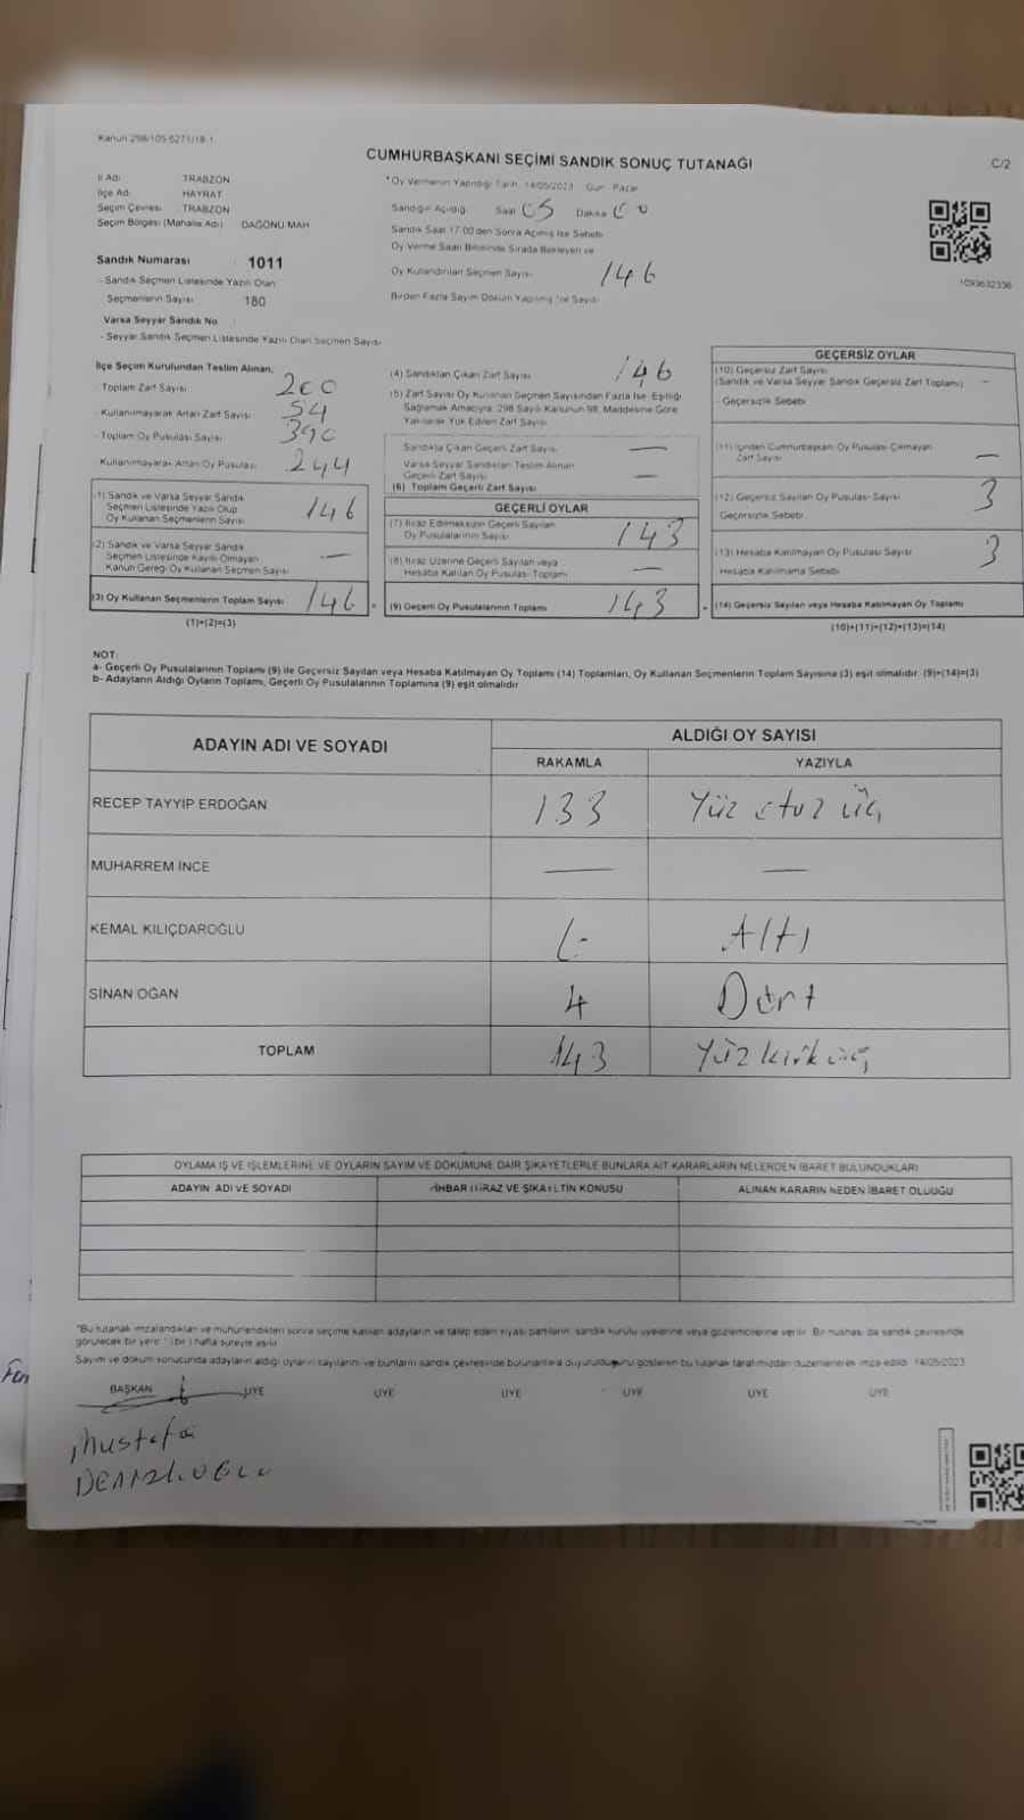 Kanun 298/105-6271/18-1
CUMHURBAŞKANI SEÇİMİ SANDIK SONUÇ TUTANAĞI
C/2
İl Adı TRABZON
İlçe Adı HAYRAT
Seçim Çevresi TRABZON
Seçim Bölgesi (Mahalle Adı) DAĞÖNÜ MAH
Sandık Numarası 1011
- Sandık Seçmen Listesinde Yazılı Olan
Seçmenlerin Sayısı 180
Varsa Seyyar Sandık No
- Seyyar Sandık Seçmen Listesinde Yazılı Olan Seçmen Sayısı
*Oy Vermenin Yapıldığı Tarih 14/05/2023 Gün Pazar
Sandığın Açıldığı Saat Dakika
Sandık Saat 17:00'den Sonra Açılmış İse Sebebi
Oy Verme Saati Bitiminde Sırada Bekleyen ve
Oy Kullandırılan Seçmen Sayısı 146
Birden Fazla Sayım Döküm Yapılmış İse Sayısı
1093632336
İlçe Seçim Kurulundan Teslim Alınan,
Toplam Zarf Sayısı 200
- Kullanılmayarak Artan Zarf Sayısı 54
- Toplam Oy Pusulası Sayısı 390
Kullanılmayarak Artan Oy Pusulası 244
(1) Sandık ve Varsa Seyyar Sandık
Seçmen Listesinde Yazılı Olup
Oy Kullanan Seçmenlerin Sayısı 146
(2) Sandık ve Varsa Seyyar Sandık
Seçmen Listesinde Kayıtlı Olmayan
Kanun Gereği Oy Kullanan Seçmen Sayısı —
(3) Oy Kullanan Seçmenlerin Toplam Sayısı 146
(1)+(2)=(3)
(4) Sandıktan Çıkan Zarf Sayısı 146
(5) Zarf Sayısı Oy Kullanan Seçmen Sayısından Fazla İse, Eşitliği
Sağlamak Amacıyla, 298 Sayılı Kanunun 98. Maddesine Göre
Yakılarak Yok Edilen Zarf Sayısı
Sandıkta Çıkan Geçerli Zarf Sayısı —
Varsa Seyyar Sandıktan Teslim Alınan
Geçerli Zarf Sayısı —
(6) Toplam Geçerli Zarf Sayısı
GEÇERLİ OYLAR
(7) İtiraz Edilmeksizin Geçerli Sayılan
Oy Pusulalarının Sayısı 143
(8) İtiraz Üzerine Geçerli Sayılan veya
Hesaba Katılan Oy Pusulası Toplamı —
(9) Geçerli Oy Pusulalarının Toplamı 143
GEÇERSİZ OYLAR
(10) Geçersiz Zarf Sayısı
(Sandık ve Varsa Seyyar Sandık Geçersiz Zarf Toplamı) -
- Geçersizlik Sebebi
(11) İçinden Cumhurbaşkanı Oy Pusulası Çıkmayan
Zarf Sayısı —
(12) Geçersiz Sayılan Oy Pusulası Sayısı 3
Geçersizlik Sebebi
(13) Hesaba Katılmayan Oy Pusulası Sayısı 3
Hesaba Katılmama Sebebi
(14) Geçersiz Sayılan veya Hesaba Katılmayan Oy Toplamı
(10)+(11)+(12)+(13)=(14)
NOT:
a- Geçerli Oy Pusulalarının Toplamı (9) ile Geçersiz Sayılan veya Hesaba Katılmayan Oy Toplamı (14) Toplamları, Oy Kullanan Seçmenlerin Toplam Sayısına (3) eşit olmalıdır. (9)+(14)=(3)
b- Adayların Aldığı Oyların Toplamı, Geçerli Oy Pusulalarının Toplamına (9) eşit olmalıdır
ADAYIN ADI VE SOYADI
ALDIĞI OY SAYISI
RAKAMLA YAZIYLA
RECEP TAYYİP ERDOĞAN 133 Yüz otuz üç
MUHARREM İNCE — —
KEMAL KILIÇDAROĞLU Altı
SİNAN OĞAN 4 Dört
TOPLAM 143 Yüz kırk üç
OYLAMA İŞ VE İŞLEMLERİNE VE OYLARIN SAYIM VE DÖKÜMÜNE DAİR ŞİKAYETLERLE BUNLARA AİT KARARLARIN NELERDEN İBARET BULUNDUKLARI
ADAYIN ADI VE SOYADI İHBAR İTİRAZ VE ŞİKAYETİN KONUSU ALINAN KARARIN NEDEN İBARET OLDUĞU
*Bu tutanak imzalandıktan ve mühürlendikten sonra seçime katılan adayların ve talep eden siyasi partilerin, sandık kurulu üyelerine veya gözlemcilerine verilir. Bir nüshası da sandık çevresinde
görülecek bir yere 1 (bir) hafta süreyle asılır
Sayım ve döküm sonucunda adayların aldığı oyların sayılarını ve bunların sandık çevresinde bulunanlara duyurulduğunu gösteren bu tutanak tarafımızdan düzenlenerek imza edildi. 14/05/2023
BAŞKAN ÜYE ÜYE ÜYE ÜYE ÜYE ÜYE
Mustafa